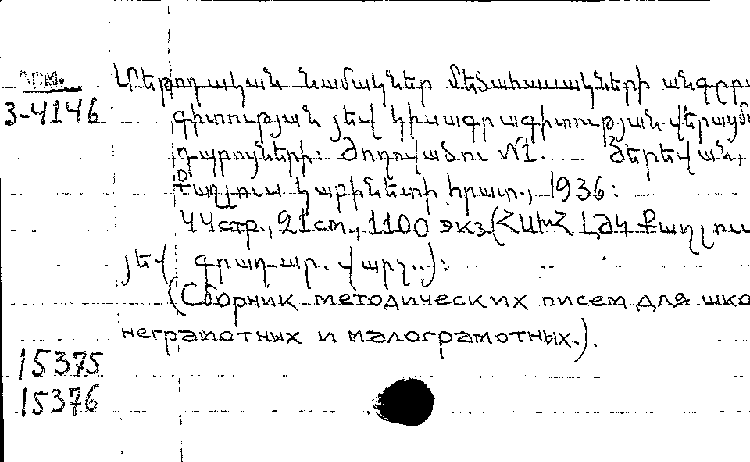 Арм.
3-4146
Մեթոդական նամակներ մեծահասակների անգրա
գիտության յեվ կիսագրագիտության վերացմ
դպրոցների: Ժողովածու №1. Յերեվան,
Քաղլուս կաբինետի հրատ., 1936:
44стр., 21см., 1100 экз. (ՀՍԽՀ ԼԺԿ Քաղլուս
յեվ գրադ-ար. վարչ..):
(Сборник методических писем для шко
неграмотных и малограмотных.).
15375
15376